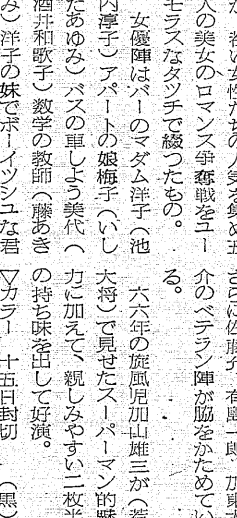 人の美女のロマンス争奪戦をユー
モラスなタッチで綴つたもの。
女優陣はバーのマダム洋子（池
内淳子）アパートの娘梅子（いし
だあゆみ）バスの車しよう美代（
酒井和歌子）数学の教師（藤あき
み）洋子の妹でボーイッシュな君
介のベテラン陣が脇をかためてい
る。
六六年の旋風児加山雄三が（若
大将）で見せたスーパーマン的
力に加えて、親しみやすい二枚半
の持ち味を出して好演。
▽カラー 十五日封切 （黒）